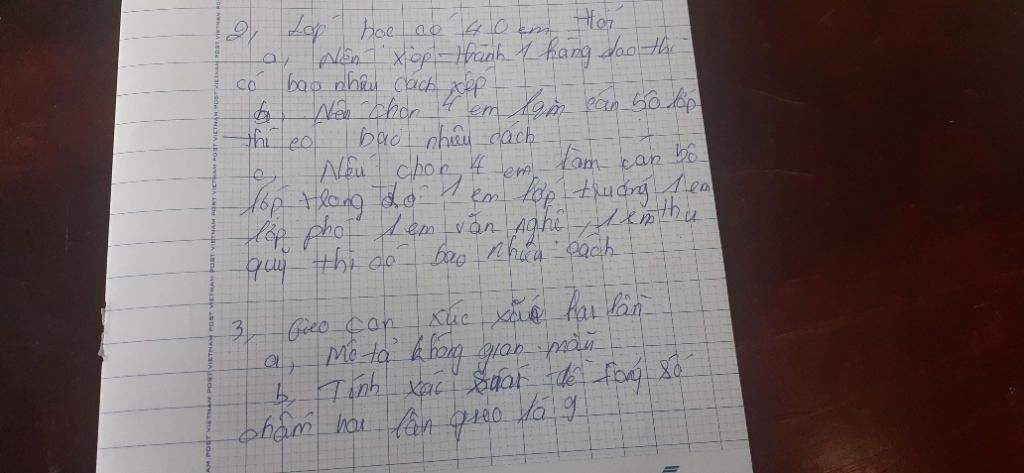 2, Lớp học có 40 em Hỏi
a, Nếu xếp thành 1 hàng dao thì
có bao nhiêu cách xếp
b, Nếu chọn 4 em làm cán bộ lớp
thì co bao nhiêu cách
c, Nếu chọn 4 em làm cán bộ
lớp trong đó 1 em lớp trưởng 1 em
lớp phó 1 em văn nghê, 1 em thu
quỹ thì có bao nhiêu cách
3, Gieo con xúc xắc hai lần
a, Mô tả không gian mẫu
b, Tính xác suất để tổng số
chấm hai lần gieo là 9
VIETNAM POST VIETNAM POST VIETNAM POST VIETNAM POST